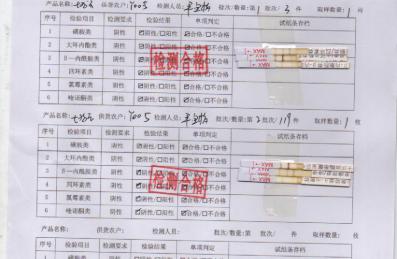 产品名称: 供货农户: Y005 检测人员: 批次/数量:第1批次/3件 取样数量:1
序号 检验项目 检测要求 检验结果 单项判定 试纸条存档
1 磺胺类 阴性 ☑阴性/☐阳性 ☑合格/☐不合格
2 大环内酯类 阴性 ☑阴性/☐阳性 ☑合格/☐不合格
3 β一内酰胺类 阴性 ☑合格/☐不合格
4 四环素类 阴性 ☑合格/☐不合格
5 氯霉素类 阴性 ☑阴性/☐阳性 ☑合格/☐不合格
6 喹诺酮类 阴性 ☑阴性/☐阳性 ☑合格/☐不合格
检测合格
产品名称: 供货农户: Y005 检测人员: 批次/数量:第3批次/119件 取样数量:1枚
序号 检验项目 检测要求 检验结果 单项判定 试纸条存档
1 磺胺类 阴性 ☑阴性/☐阳性 ☑合格/☐不合格
2 大环内酯类 阴性 ☑阴性/☐阳性 ☑合格/☐不合格
3 β一内酰胺类 阴性 ☑合格/☐不合格
4 四环素类 阴性 ☑合格/☐不合格
5 氯霉素类 阴性 ☑阴性/☐阳性 ☑合格/☐不合格
6 喹诺酮类 阴性 ☑阴性/☐阳性 ☑合格/☐不合格
检测合格
产品名称: 供货农户: 检测人员: 批次/数量:第 批次/ 件 取样数量: 枚
序号 检验项目 检测要求 检验结果 单项判定 试纸条存档
1 磺胺类 阴性 ☐阴性/☐阳性 ☐合格/☐不合格